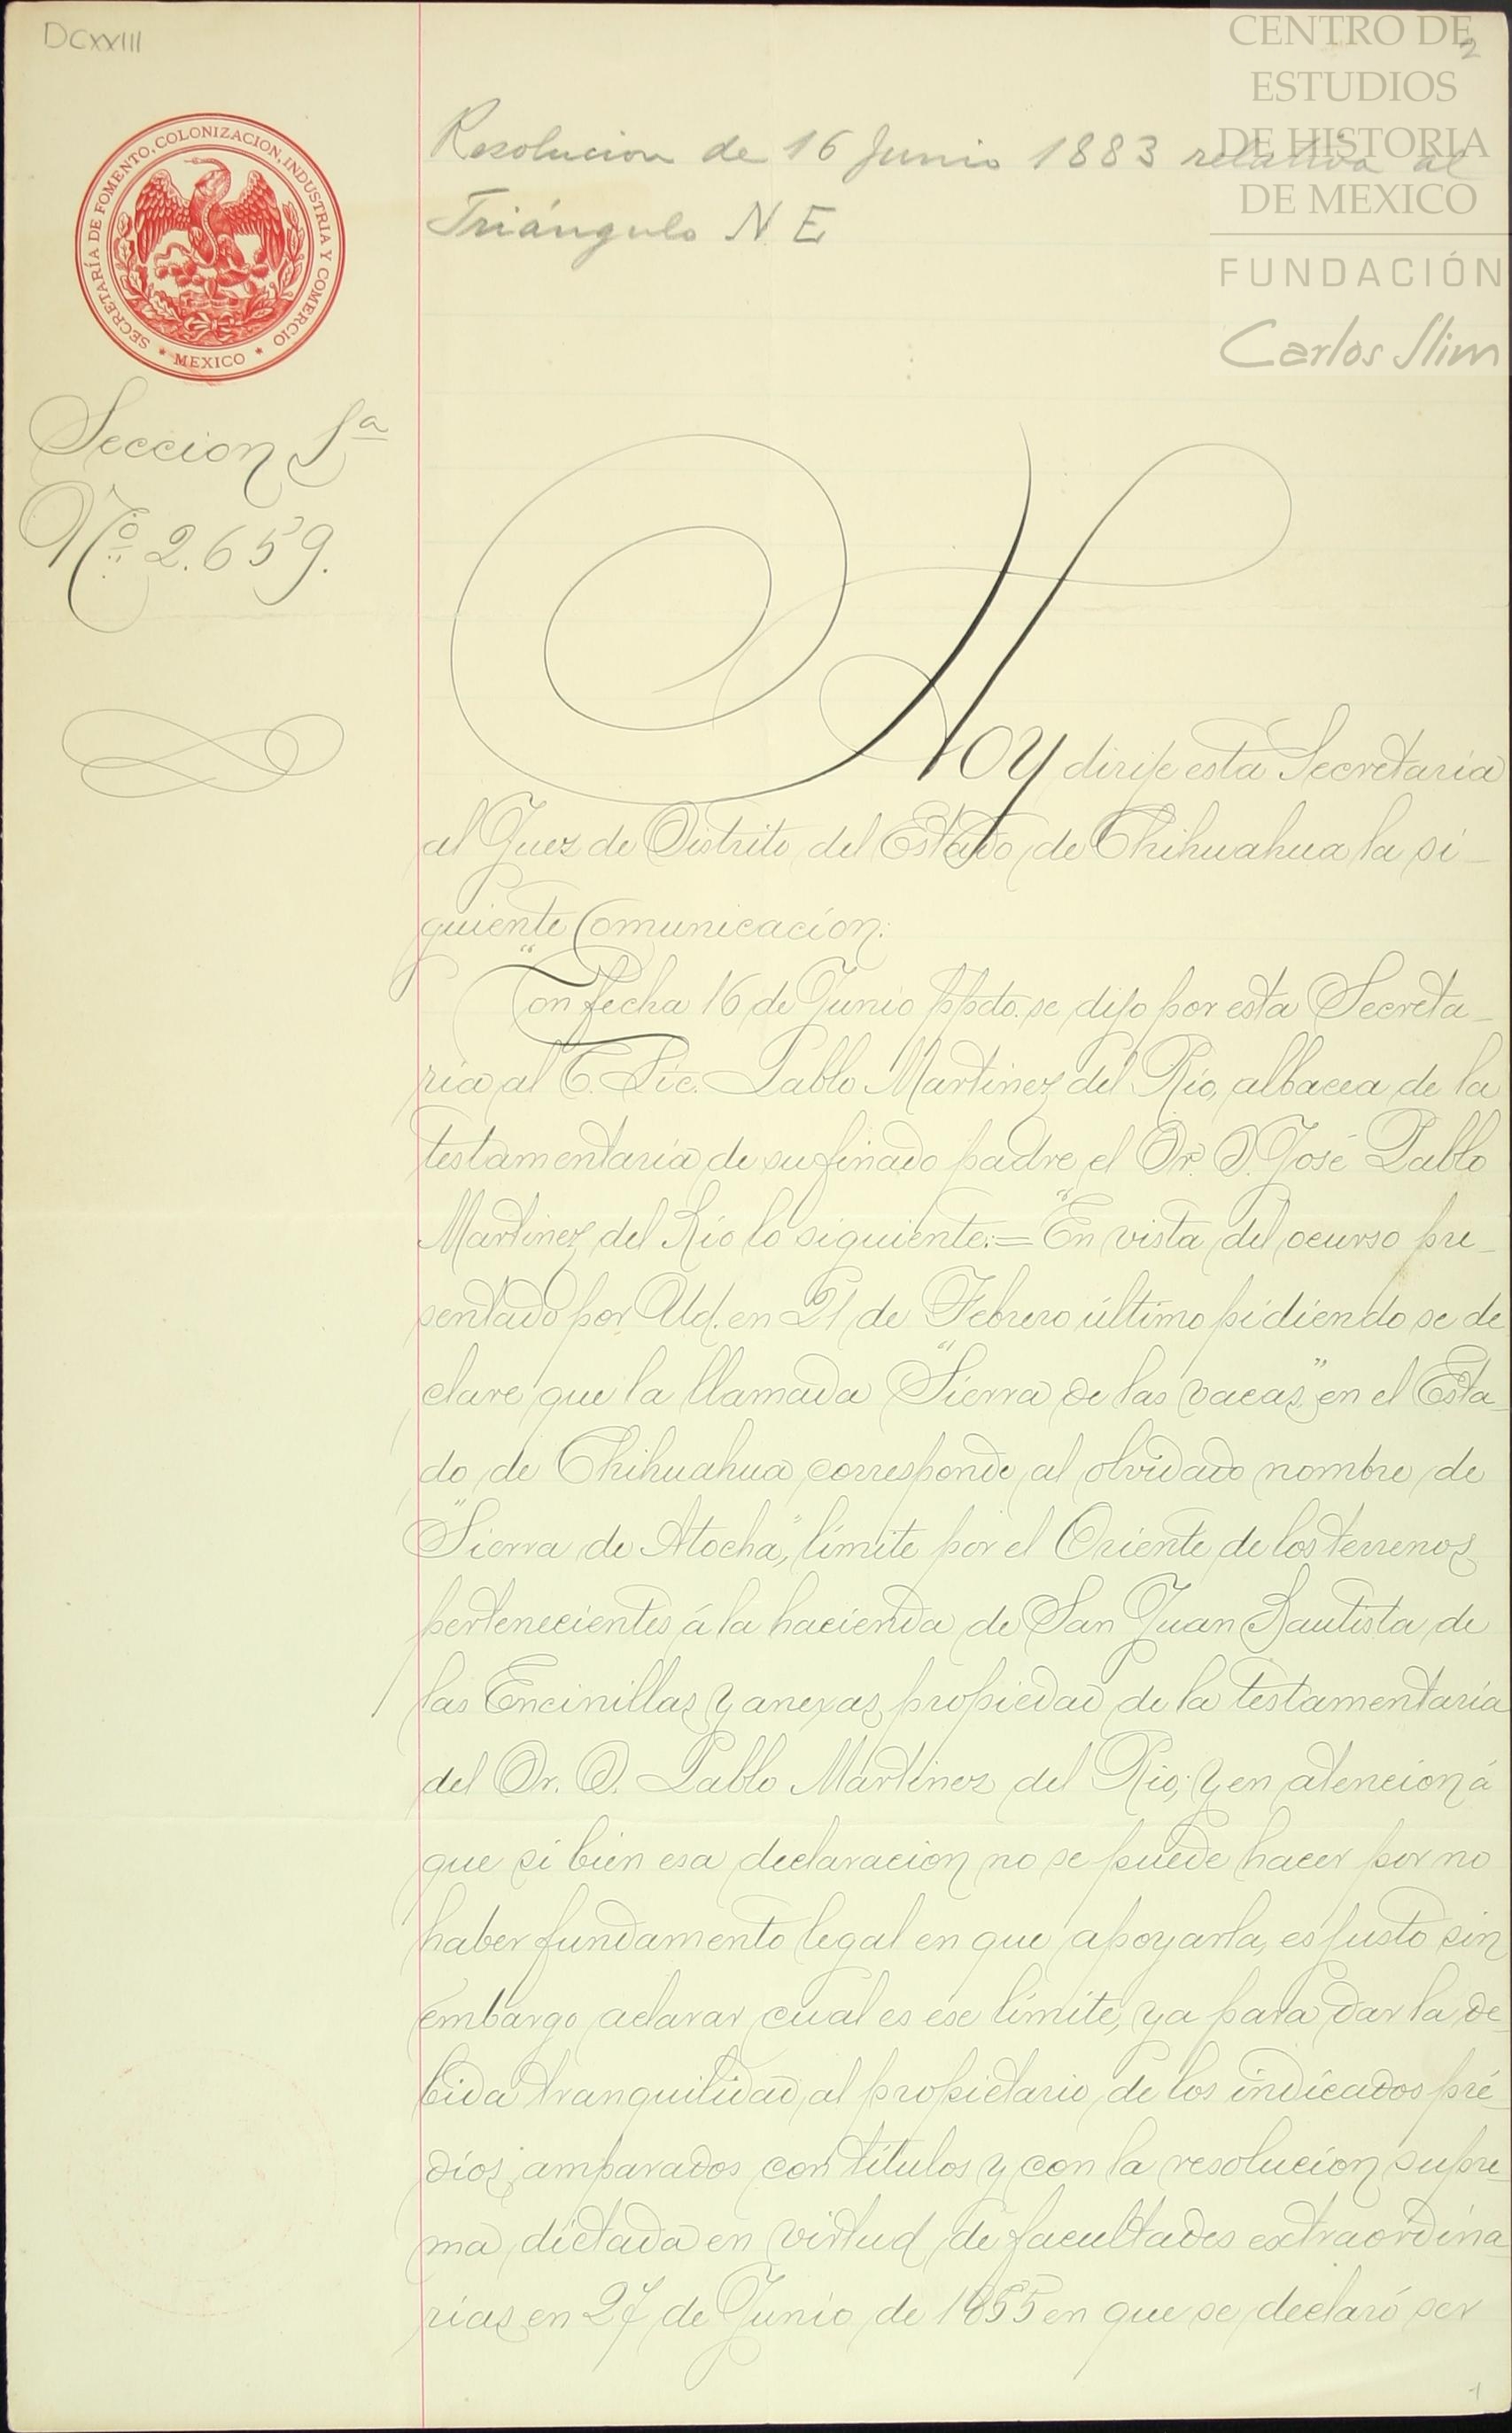 DCXXIII
2
CENTRO DE
ESTUDIOS
DE HISTORIA
DE MEXICO
FUNDACIÓN
Carlos Slim
SECRETARÍA DE FOMENTO, COLONIZACION, INDUSTRIA Y COMERCIO
* MEXICO *
Resolucion de 16 Junio 1883 relativa al
Triángulo N. E
Seccion 1ª
Nº 2.659.
Hoy dirije esta Secretaría
al Juez de Distrito del Estado de Chihuahua la si-
guiente Comunicación:
"Con fecha 16 de Junio ppdo. se dijo por esta Secreta-
ría al C. Lic. Pablo Martinez del Rio, albacea de la
testamentaría de su finado padre el Dr. D. José Pablo
Martinez del Rio lo siguiente:="En vista del ocurso pre-
sentado por Ud. en 21 de Febrero último pidiendo se de
clare que la llamada "Sierra de las vacas" en el Esta-
do de Chihuahua corresponde al olvidado nombre de
"Sierra de Atocha", límite por el Oriente de los terrenos
pertenecientes á la hacienda de San Juan Bautista de
las Encinillas y anexas propiedad de la testamentaría
del Dr. D. Pablo Martinez del Rio; y en atencion á
que si bien esa declaracion no se puede hacer por no
haber fundamento legal en que apoyarla, es justo sin
embargo aclarar cual es ese límite, ya para dar la de-
bida tranquilidad al propietario de los indicados pre-
dios, amparados con títulos y con la resolucion supre-
ma dictada en virtud de facultades extraordina
rias en 27 de Junio de 1855 en que se declaró ser
1